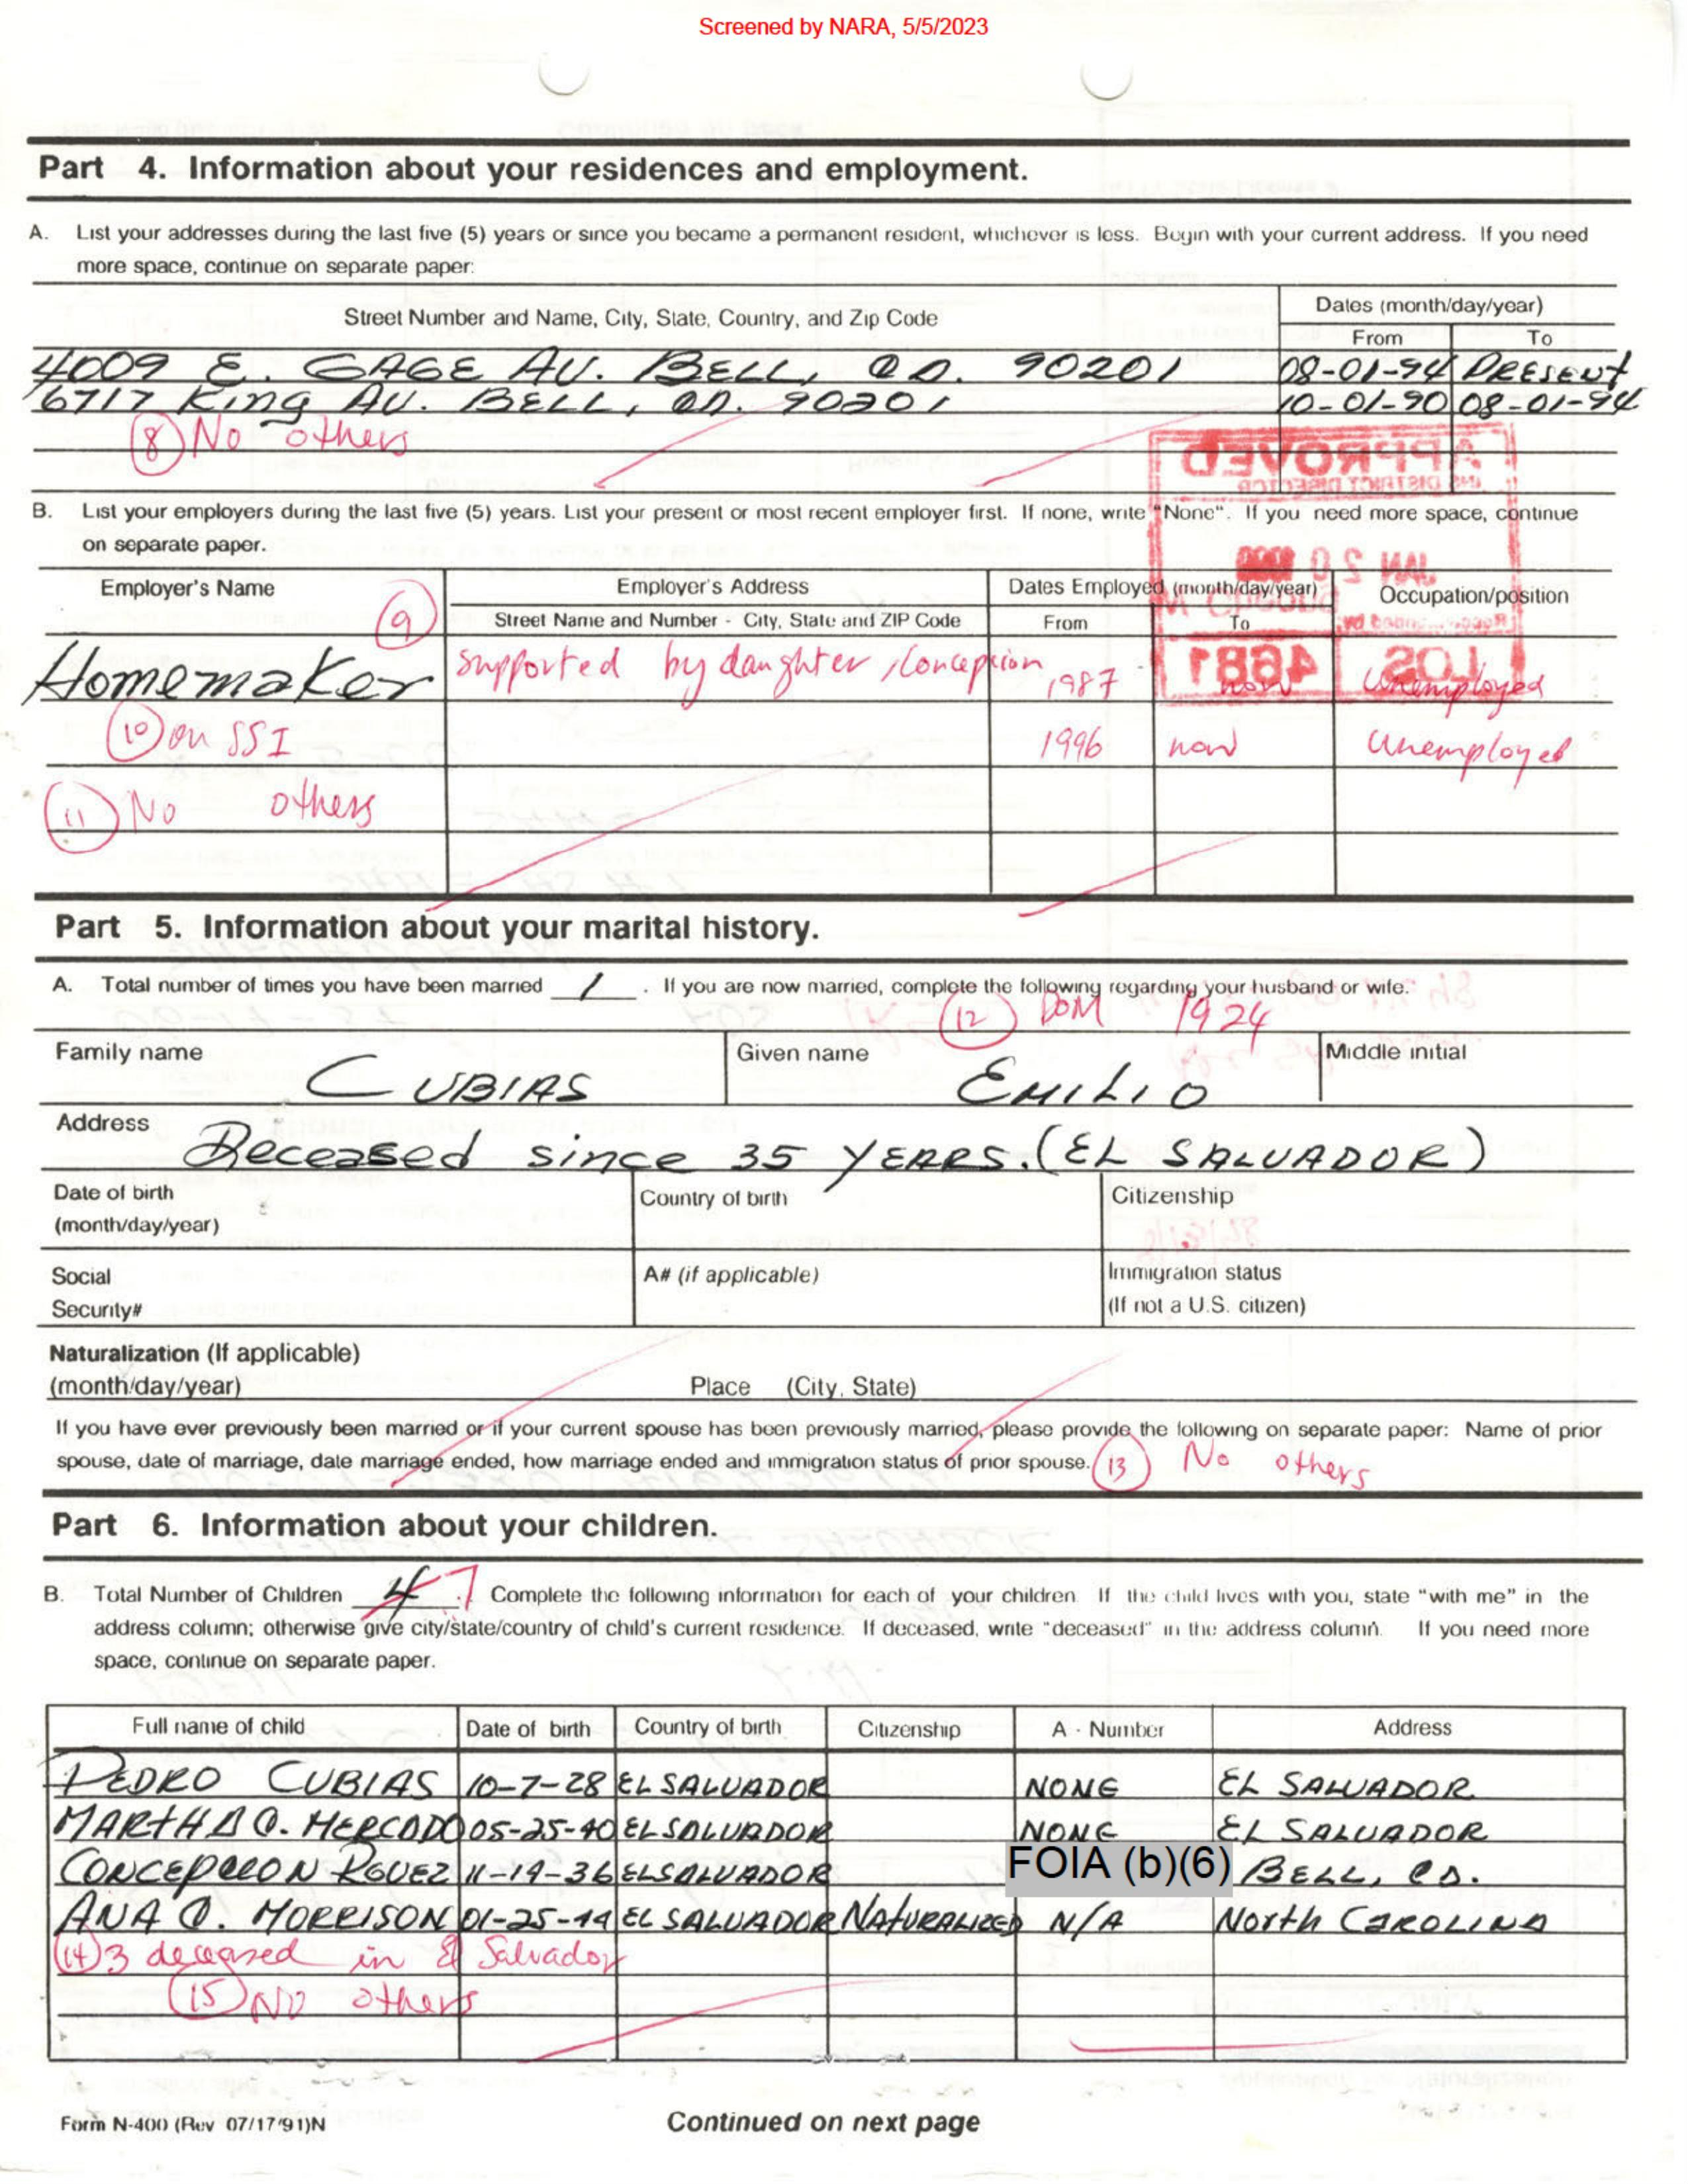 Screened by NARA, 5/5/2023
Part 4. Information about your residences and employment.
A. List your addresses during the last five (5) years or since you became a permanent resident, whichever is less. Begin with your current address. If you need
more space, continue on separate paper:
Street Number and Name, City, State, Country, and Zip Code
Dates (month/day/year)
From To
4009 E. GAGE AV. BELL, CA. 90201 08-01-94 PRESENT
6717 King AV. BELL, CA. 90201 10-01-90 08-01-94
(8) No others
APPROVED
INS DISTRICT DIRECTOR
B. List your employers during the last five (5) years. List your present or most recent employer first. If none, write "None". If you need more space, continue
on separate paper.
JAN 20
Employer's Name Employer's Address Dates Employed (month/day/year) Occupation/position
(9) Street Name and Number - City, State and ZIP Code From To
Recommended by:
LOS 4681
Homemaker supported by daughter, Concepcion 1987 now Unemployed
(10) on SSI 1996 now Unemployed
(11) No others
Part 5. Information about your marital history.
A. Total number of times you have been married 1 . If you are now married, complete the following regarding your husband or wife:
(12) DOM 1924
Family name CUBIAS Given name EMILIO Middle initial
Address Deceased since 35 YEARS. (EL SALVADOR)
Date of birth
(month/day/year) Country of birth Citizenship
Social
Security# A# (if applicable) Immigration status
(If not a U.S. citizen)
Naturalization (If applicable)
(month/day/year) Place (City, State)
If you have ever previously been married or if your current spouse has been previously married, please provide the following on separate paper: Name of prior
spouse, date of marriage, date marriage ended, how marriage ended and immigration status of prior spouse. (13) No others
Part 6. Information about your children.
B. Total Number of Children 4 7 . Complete the following information for each of your children. If the child lives with you, state "with me" in the
address column; otherwise give city/state/country of child's current residence. If deceased, write "deceased" in the address column. If you need more
space, continue on separate paper.
Full name of child Date of birth Country of birth Citizenship A - Number Address
PEDRO CUBIAS 10-7-28 EL SALVADOR NONE EL SALVADOR
MARTHA C. MERCADO 05-25-40 EL SALVADOR NONE EL SALVADOR
CONCEPCION RGUEZ 11-19-36 EL SALVADOR FOIA (b)(6) BELL, CA.
ANA C. MORRISON 01-25-44 EL SALVADOR NATURALIZED N/A North CAROLINA
(14) 3 deceased in El Salvador
(15) No others
Form N-400 (Rev 07/17/91)N Continued on next page